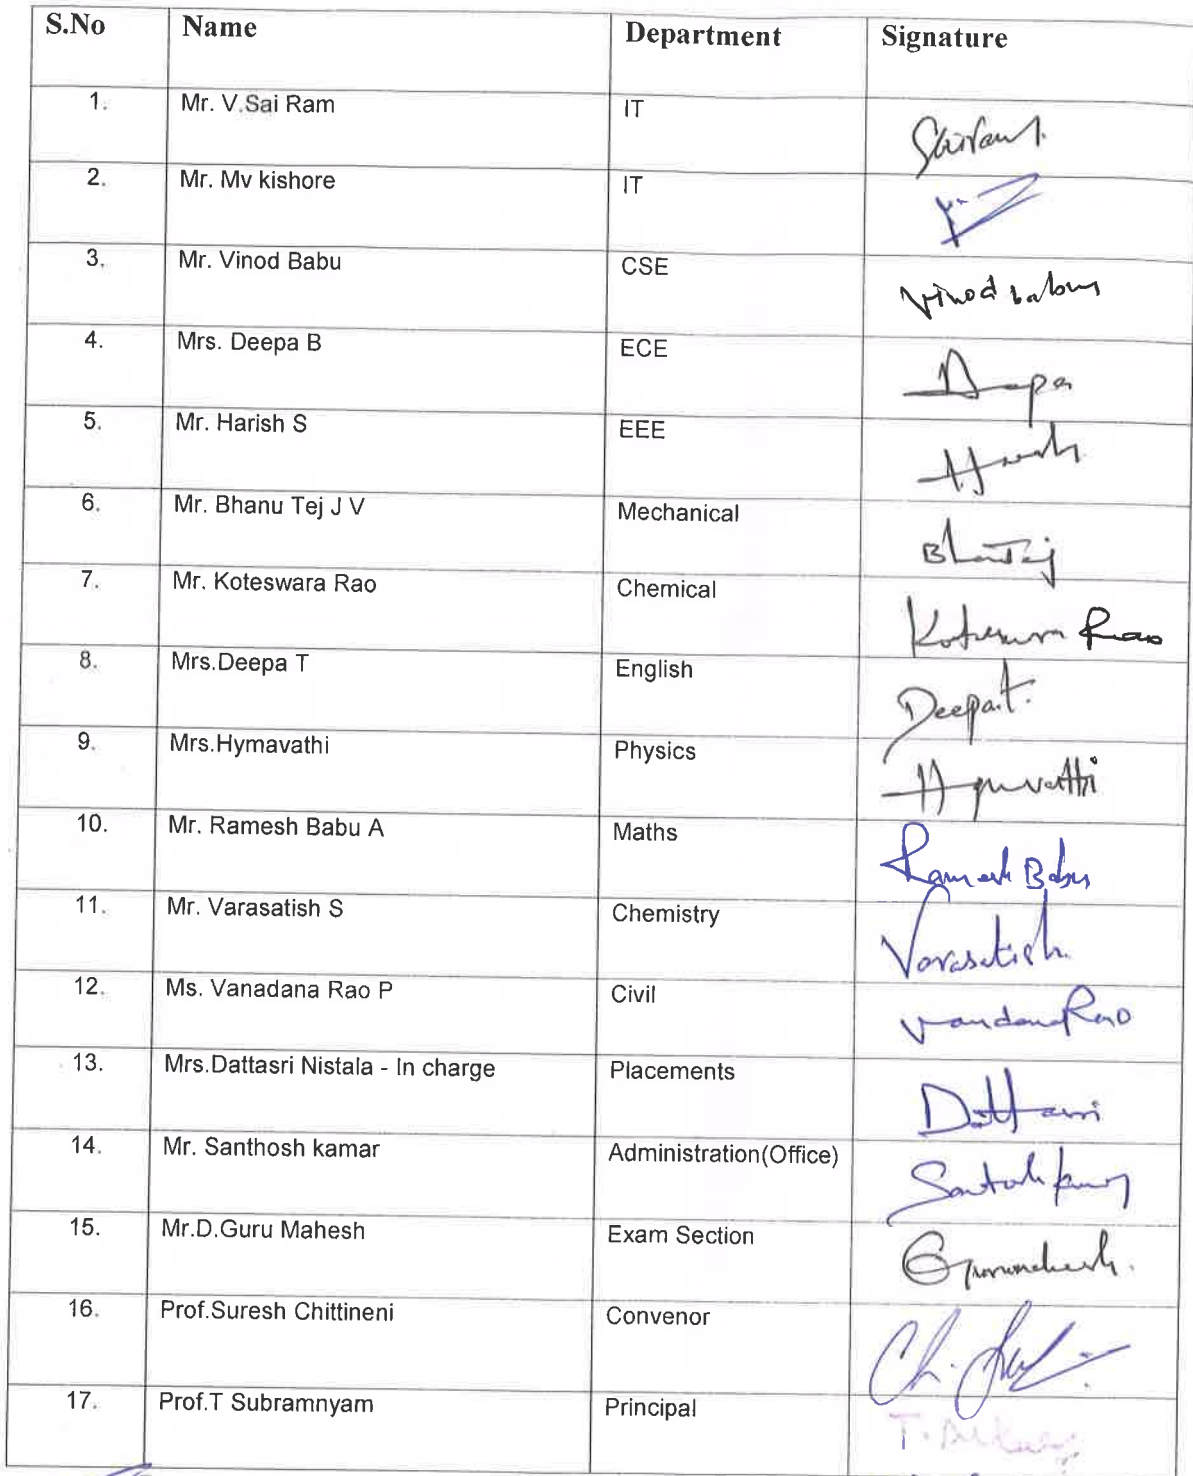 S.No Name Department Signature
1. Mr. V.Sai Ram IT Sairam
2. Mr. Mv kishore IT
3. Mr. Vinod Babu CSE Vinod babu
4. Mrs. Deepa B ECE Deepa
5. Mr. Harish S EEE Harish
6. Mr. Bhanu Tej J V Mechanical BhanuTej
7. Mr. Koteswara Rao Chemical Koteswara Rao
8. Mrs.Deepa T English Deepa.t.
9. Mrs.Hymavathi Physics Hymavathi
10. Mr. Ramesh Babu A Maths Ramesh Babu
11. Mr. Varasatish S Chemistry Varasatish.
12. Ms. Vanadana Rao P Civil Vandana Rao
13. Mrs.Dattasri Nistala - In charge Placements Dattasri
14. Mr. Santhosh kamar Administration(Office) Santosh kumar
15. Mr.D.Guru Mahesh Exam Section Gurumahesh.
16. Prof.Suresh Chittineni Convenor Ch.
17. Prof.T Subramnyam Principal T.